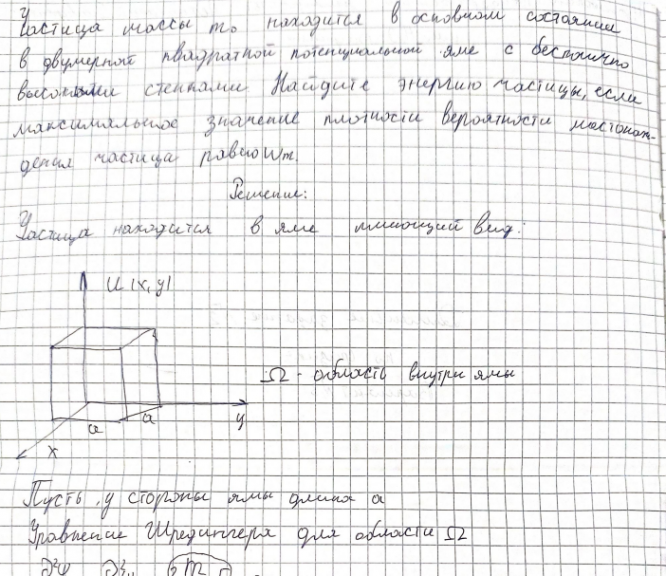 Частица массы m₀ находится в основном состоянии
в двумерной квадратной потенциальной яме с бесконечно
высокими стенками Найдите энергию частицы, если
максимальное значение плотности вероятности местонахож-
дения частица равно Wm.
Решение:
Частица находится в яме имеющий вид:
U(x, y)
Ω - область внутри ямы
a a y
x
Пусть у стороны ямы длина a
Уравнение Шредингера для области Ω